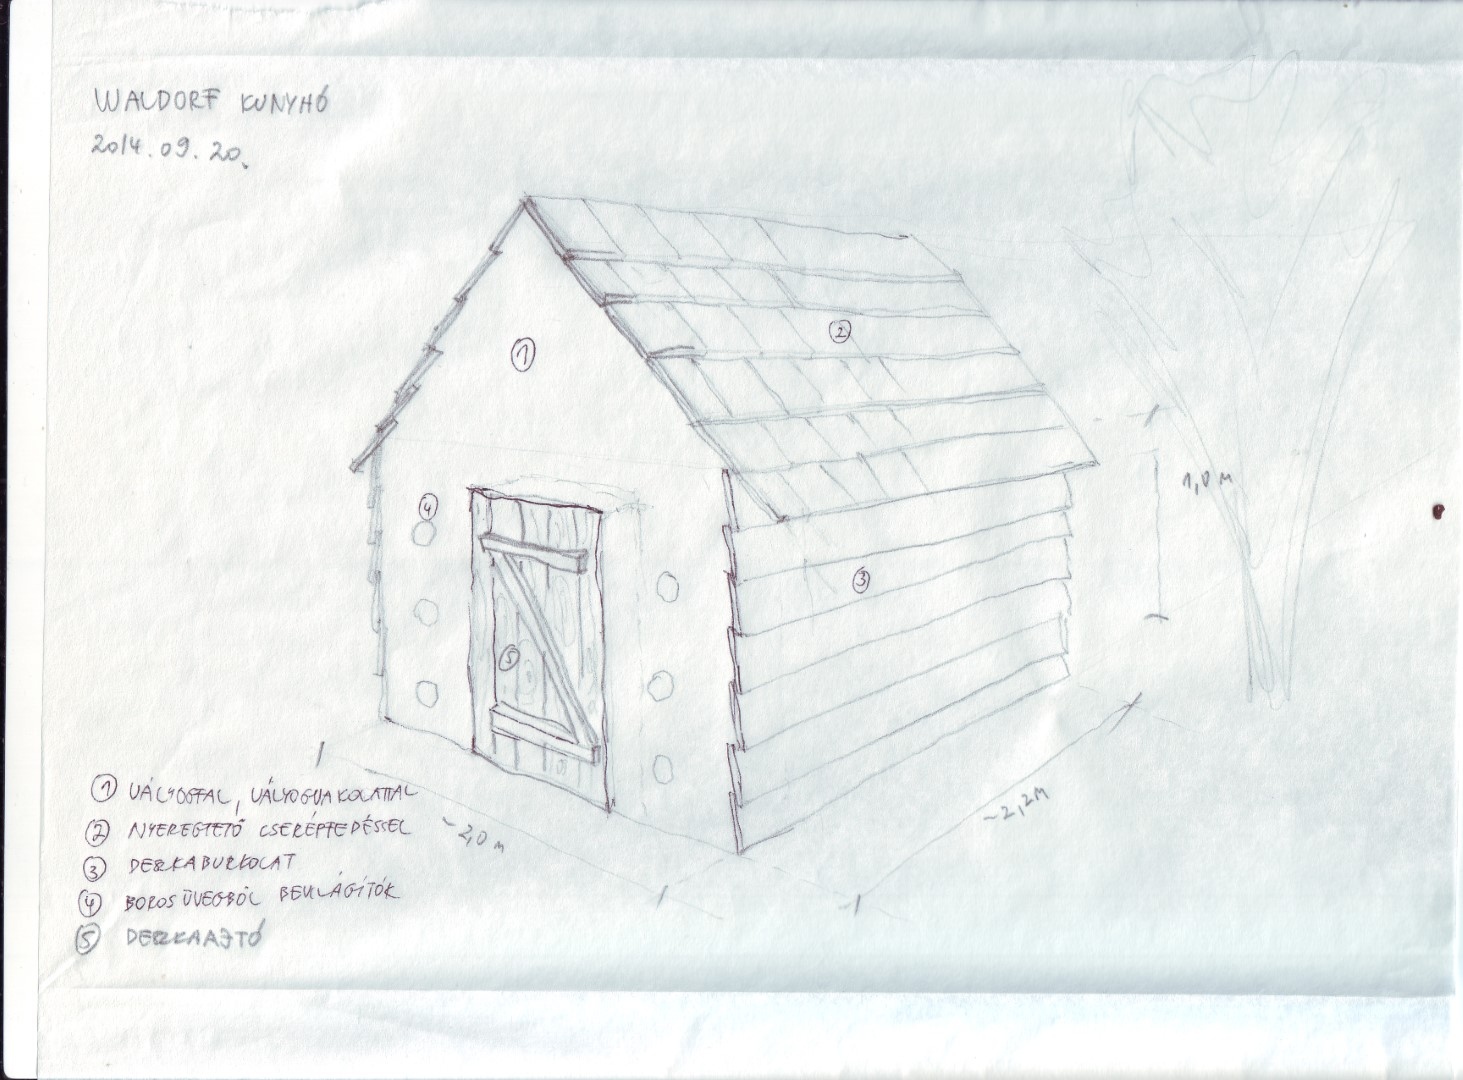 WALDORF KUNYHÓ
2014.09.20.
1
2
1,0 M
4
3
5
~2,2M
~2,0 M
1 VÁLYOGFAL, VÁLYOGVAKOLATTAL
2 NYEREGTETŐ CSERÉPFEDÉSSEL
3 DESZKABURKOLAT
4 BOROSÜVEGBŐL BEVILÁGÍTÓK
5 DESZKAAJTÓ